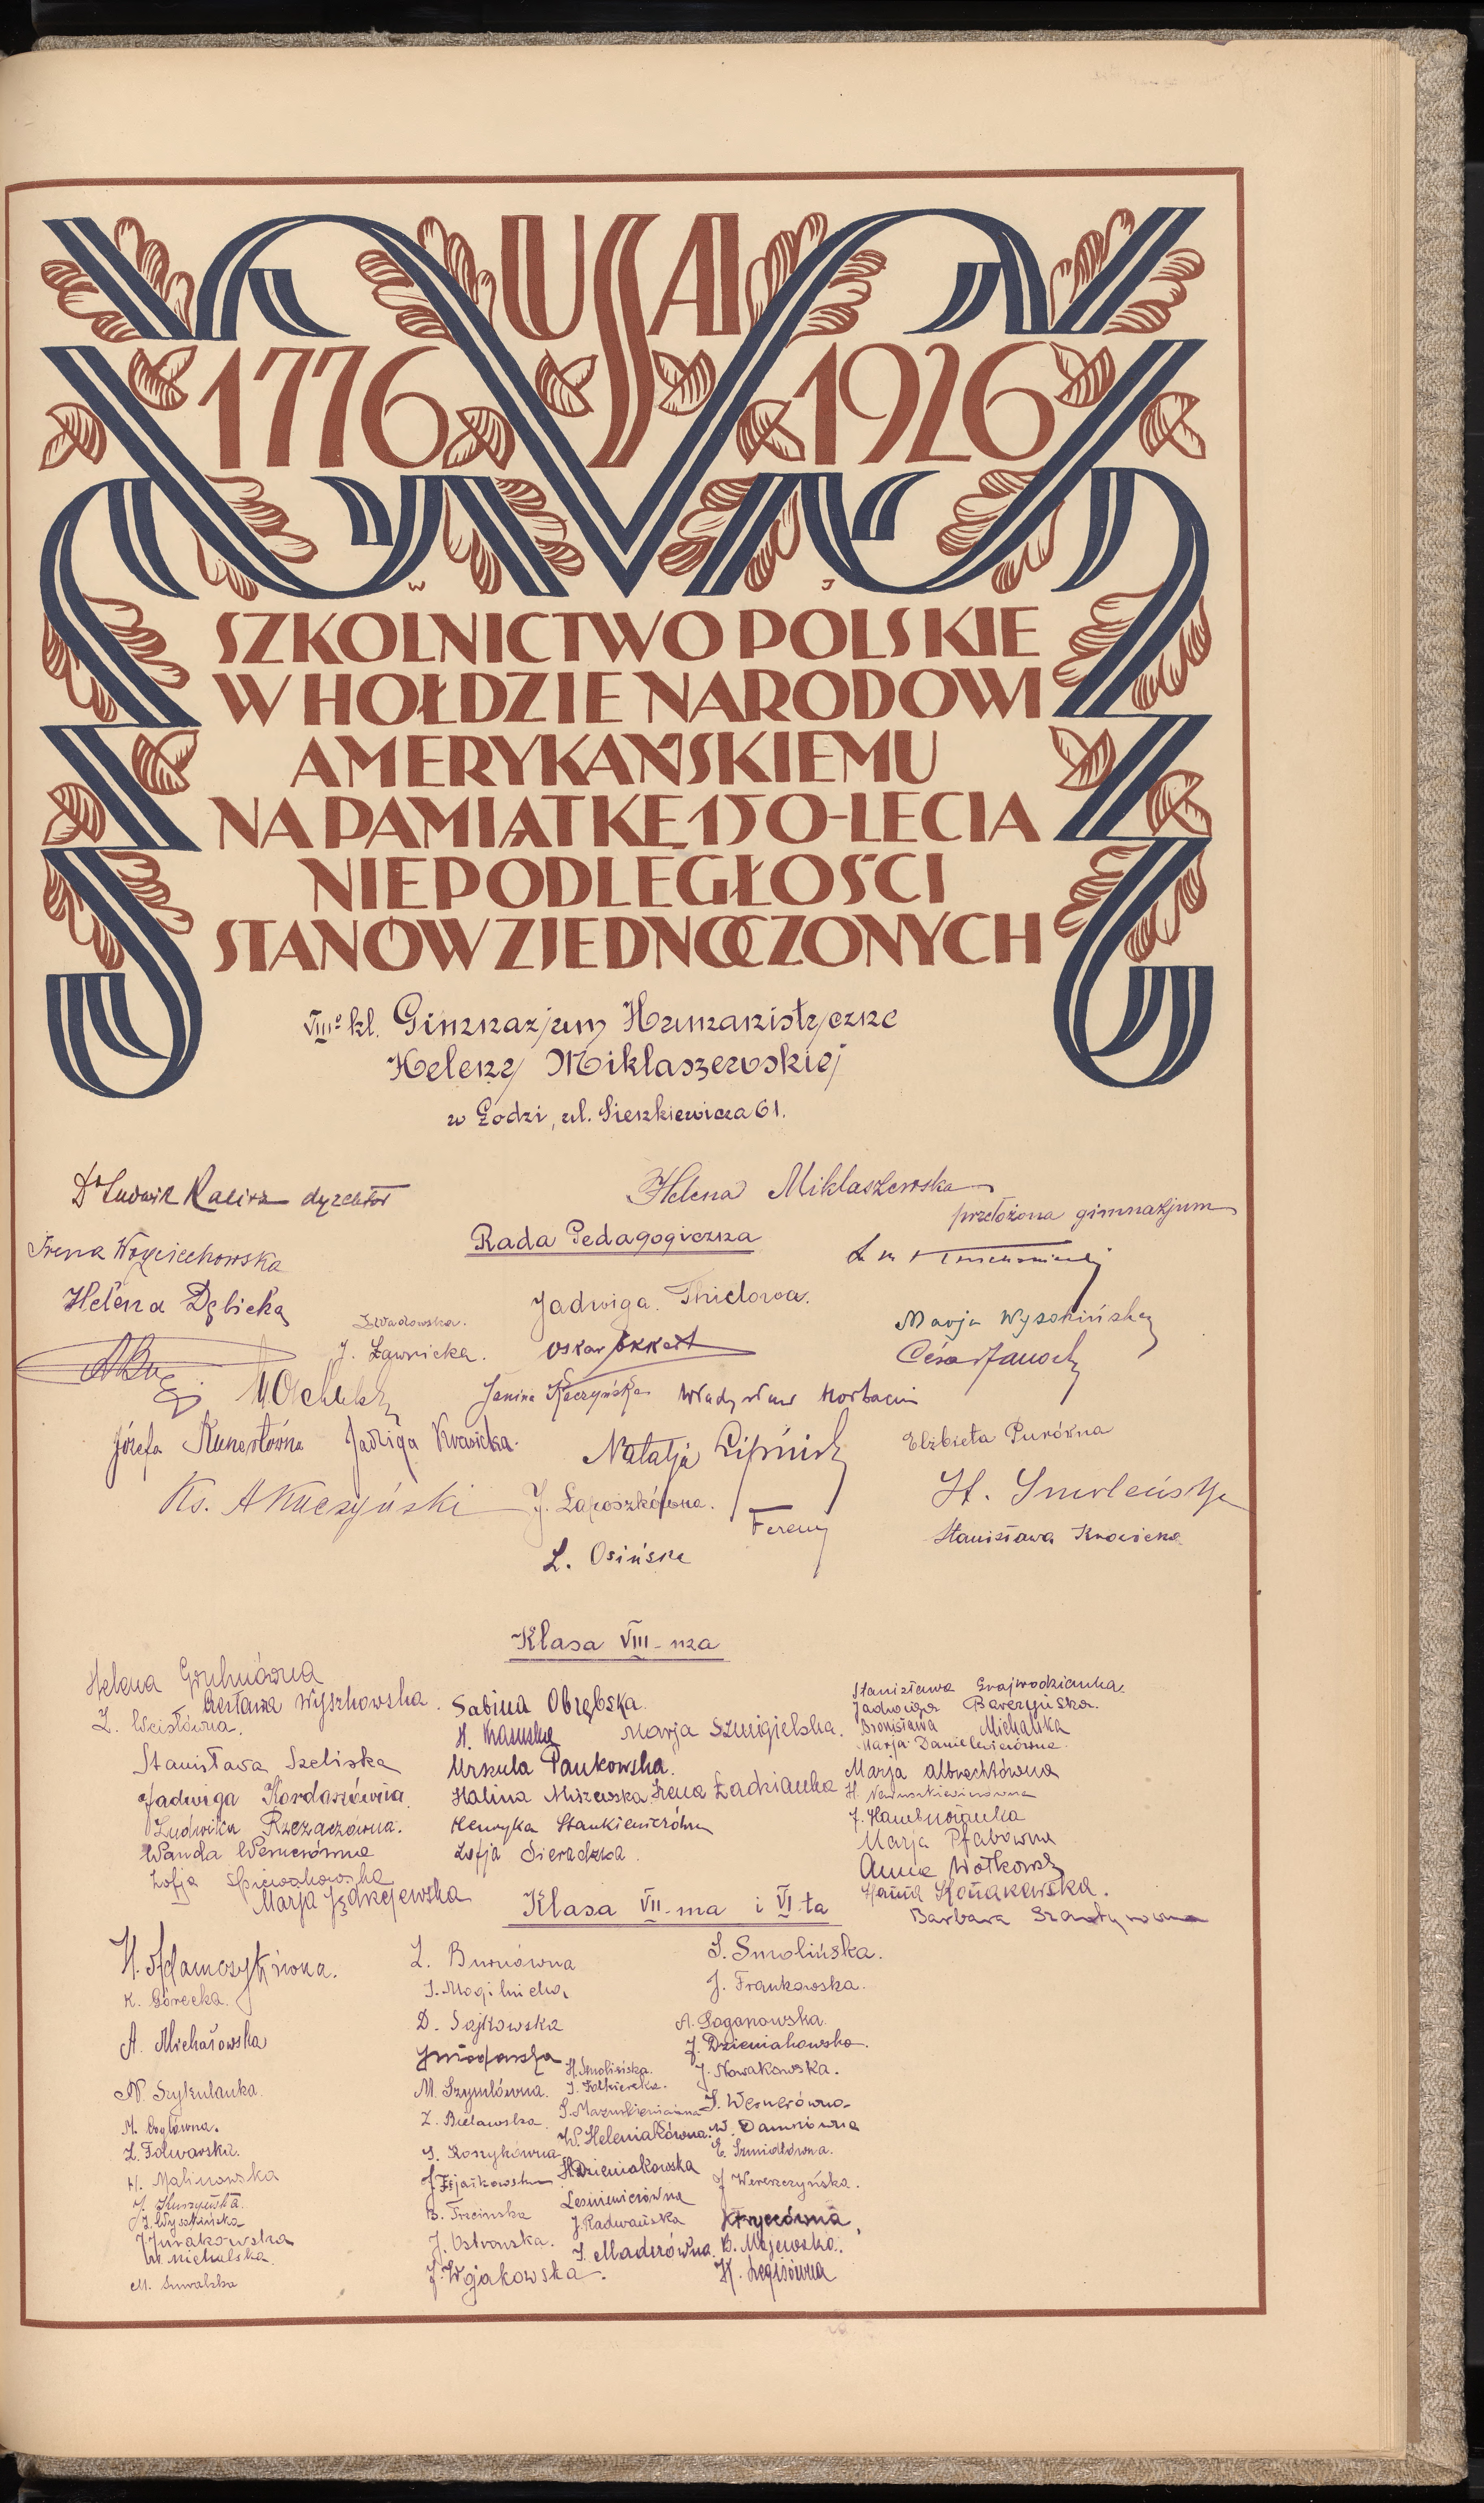 USA
1776 1926
W J
SZKOLNICTWO POLSKIE
W HOŁDZIE NARODOWI
AMERYKAŃSKIEMU
NA PAMIĄTKĘ 150-LECIA
NIEPODLEGŁOŚCI
STANÓW ZJEDNOCZONYCH
VIII° kl. Gimnazjum Humanistyczne
Heleny Miklaszewskiej
w Łodzi, ul. Sienkiewicza 61.
Dr Ludwik dyrektor
Helena Miklaszewska
przełożona gimnazjum
Rada Pedagogiczna
Irena Wojciechowska
Helena Dębicka
Jadwiga Thielowa.
Marja Wysokińska
J. Ławnicka.
Oskar Ekkert
Janina Kaczyńska
Władysław
Józefa Kunertówna
Natalja Lipińska
Elżbieta Purówna
Ks. A Kuczyński
J. Laposzkówna.
St. Smoleńska
L. Osińska
Stanisława
Klasa VIII-ma
Helena
Czesława Wyszkowska.
Z. Weistówna.
Stanisława Szeliska
Jadwiga Kordaszówna
Ludwika Rzezaczówna.
Wanda Wernerówna
Zofja Śpiewakowska
Marja Jędrzejewska
Sabina Obrębska.
Marja Szmigielska.
Urszula Pankowska.
Halina Miszewska
Irena Ładzianka
Henryka Stankiewiczówna
Zofja Sieradzka.
Stanisława Grajwodzianka.
Jadwiga Barczyńska.
Bronisława Michalska
Marja Danielewiczówna.
Marja Albrechtówna
J. Hamburżanka
Marja Pfabówna
Anna Wołkowska
Hanna Konakowska.
Barbara
Klasa VII-ma i VI-ta
H. Adamczykówna.
K. Górecka.
A. Michałowska
N. Szykulanka.
Z. Folwarska.
H. Malinowska
J. Wysokińska
J. Żurakowska
W. Michalska.
M. Suwalska
Z. Burnówna
J. Mogilnicka
D. Sajkowska
M. Szymlówna.
Z. Bielawska
S. Koszykówna
B. Trzcinska
J. Ostrowska.
J. Wojakowska.
H. Smolińska.
W. Heleniakówna.
H. Dzieniakowska
Leśniewiczówna
J. Radwańska
J. Maderówna
S. Smolińska.
J. Frankowska.
A. Łaganowska.
J. Dzieniakowska.
J. Nowakowska.
J. Wernerówna
W. Damsiówna
E. Szmidtówna.
J. Wereszczyńska.
B. Majewska.
K. Legisówna